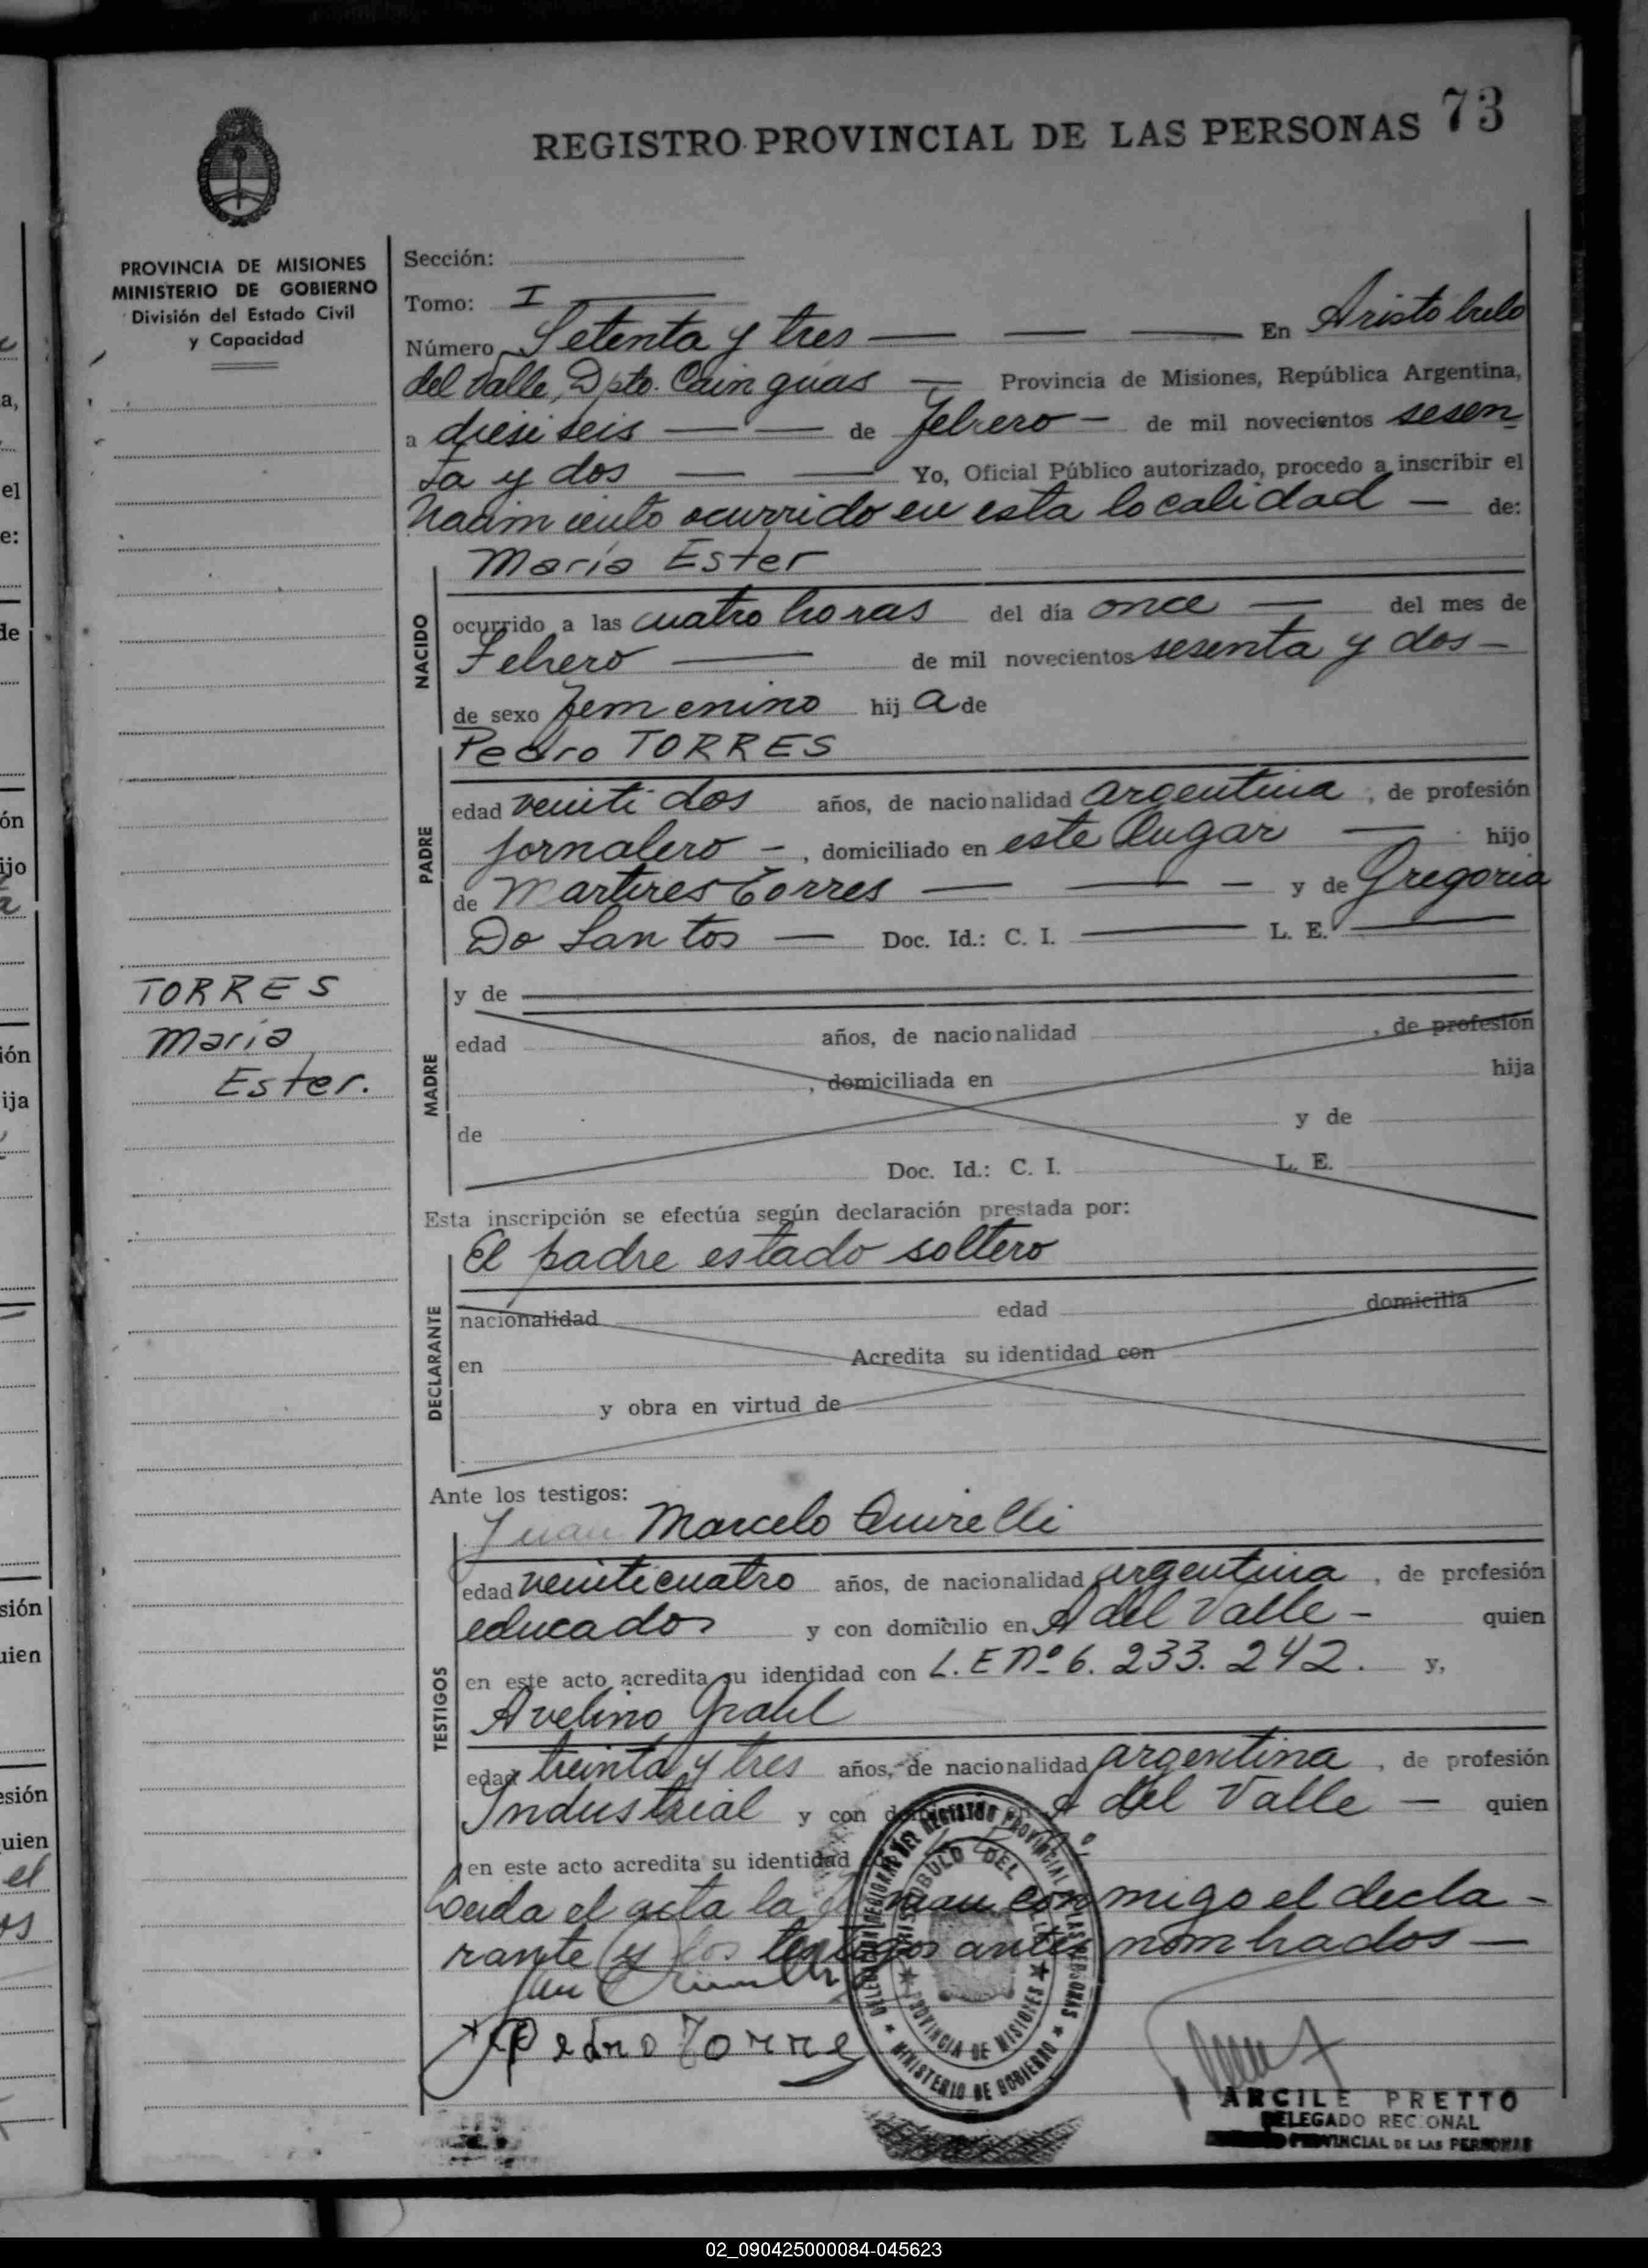 73
REGISTRO PROVINCIAL DE LAS PERSONAS
PROVINCIA DE MISIONES
MINISTERIO DE GOBIERNO
División del Estado Civil
y Capacidad
Sección:
Tomo: I
Número Setenta y tres En Aristobulo
del Valle, Dpto. Cainguas Provincia de Misiones, República Argentina,
a diesiseis de febrero de mil novecientos sesen
ta y dos Yo, Oficial Público autorizado, procedo a inscribir el
Nacimiento ocurrido en esta localidad de:
María Ester
NACIDO
ocurrido a las cuatro horas del día once del mes de
Febrero de mil novecientos sesenta y dos
de sexo femenino hij a de
Pedro TORRES
PADRE
edad veinti dos años, de nacionalidad argentina, de profesión
jornalero, domiciliado en este lugar hijo
de Martires Torres y de Gregoria
Do Santos Doc. Id.: C. I. L. E.
TORRES
María
Ester.
MADRE
y de
edad años, de nacionalidad , de profesión
, domiciliada en hija
de y de
Doc. Id.: C. I. L. E.
Esta inscripción se efectúa según declaración prestada por:
El padre estado soltero
DECLARANTE
nacionalidad edad domicilia
en Acredita su identidad con
y obra en virtud de
Ante los testigos:
Juan Marcelo
TESTIGOS
edad veinticuatro años, de nacionalidad argentina, de profesión
educador y con domicilio en A del Valle - quien
en este acto acredita su identidad con L. E Nº 6. 233. 242. y,
Avelino Grahl
edad treinta y tres años, de nacionalidad argentina, de profesión
Industrial y con A del Valle - quien
en este acto acredita su identidad
Leida el acta la firman conmigo el decla-
rante y los testigos antes nombrados
Pedro Torres
DELEGACION REGISTRO PROVINCIAL DE LAS PERSONAS
MINISTERIO DE GOBIERNO
ARISTOBULO DEL VALLE
PROVINCIA DE MISIONES
ARCILE PRETTO
DELEGADO REGIONAL
PROVINCIAL DE LAS PERSONAS
02_090425000084-045623